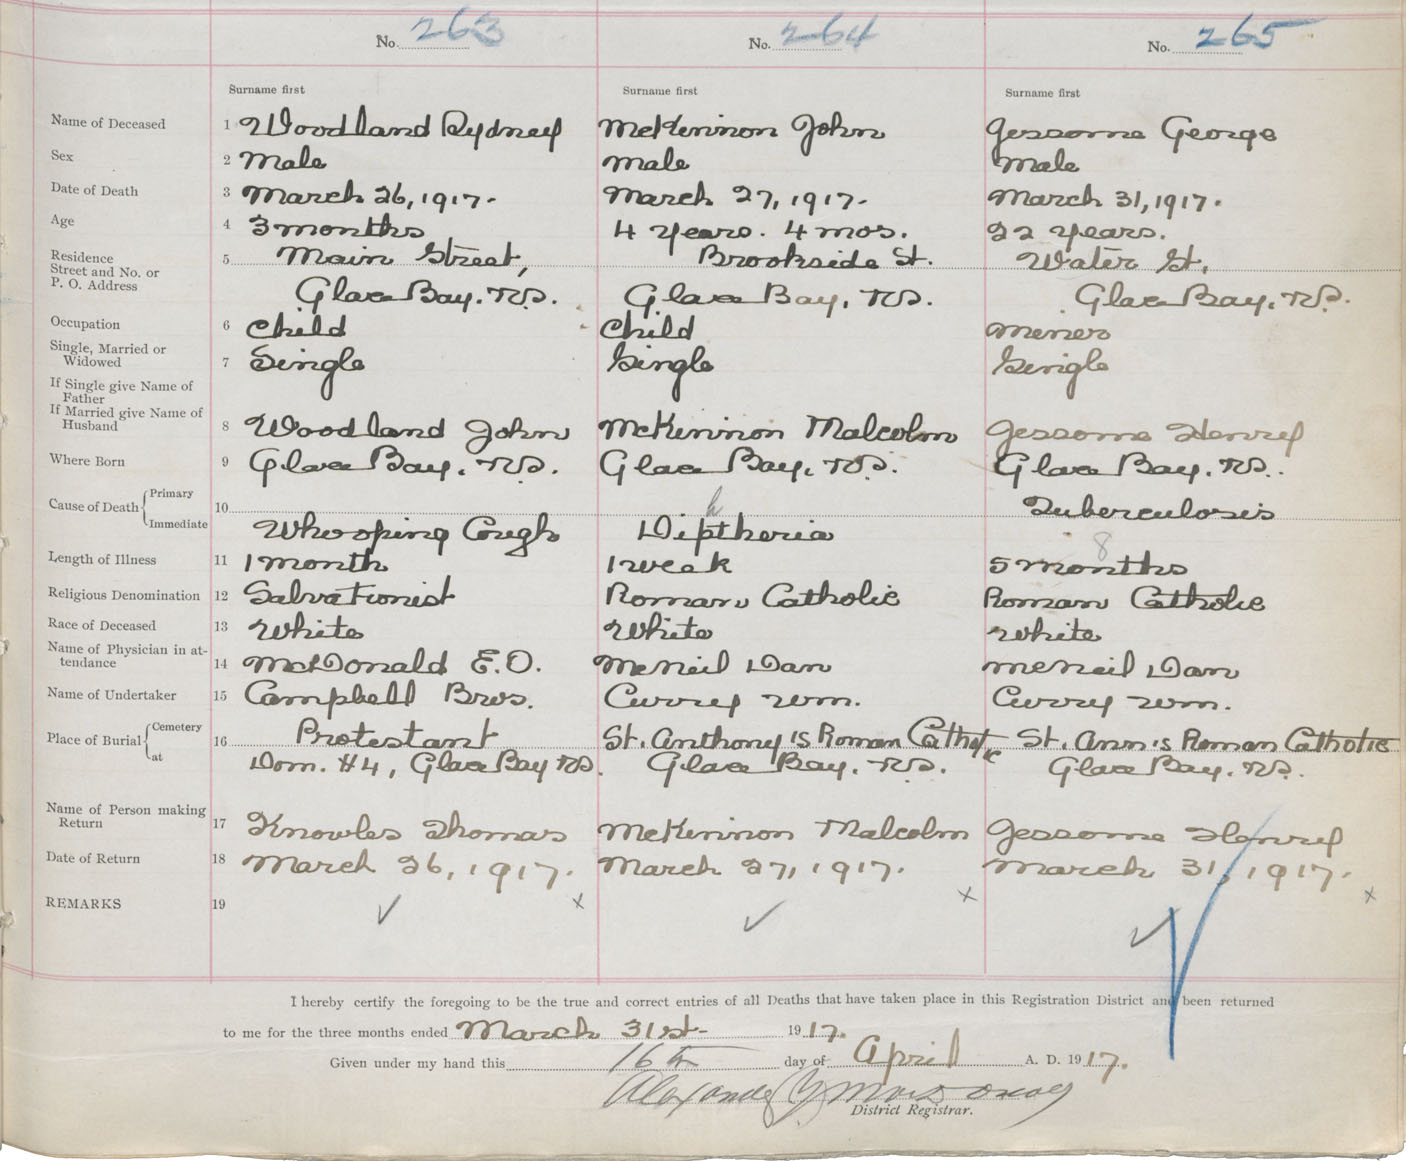 No. 263 No. 264 No. 265
Surname first Surname first Surname first
Name of Deceased 1 Woodland Sydney McKinnon John Jessome George
Sex 2 Male Male Male
Date of Death 3 March 26, 1917. March 27, 1917. March 31, 1917.
Age 4 3 months 4 years. 4 mos. 22 years.
Residence 5 Main Street, Brookside St. Water St.
Street and No. or
P. O. Address Glace Bay. N.S. Glace Bay. N.S. Glace Bay. N.S.
Occupation 6 Child Child Miner
Single, Married or
Widowed 7 Single Single Single
If Single give Name of
Father
If Married give Name of
Husband 8 Woodland John McKinnon Malcolm Jessome Henry
Where Born 9 Glace Bay. N.S. Glace Bay. N.S. Glace Bay. N.S.
Cause of Death Primary 10 Tuberculosis
Immediate Whooping Cough Diptheria
h
8
Length of Illness 11 1 month 1 week 5 months
Religious Denomination 12 Salvationist Roman Catholic Roman Catholic
Race of Deceased 13 White White White
Name of Physician in at-
tendance 14 McDonald E.O. McNeil Dan McNeil Dan
Name of Undertaker 15 Campbell Bros. Curry Wm. Curry Wm.
Place of Burial Cemetery 16 Protestant St. Anthony's Roman Catholic St. Ann's Roman Catholic
at Dom. #4, Glace Bay N.S. Glace Bay. N.S. Glace Bay. N.S.
Name of Person making
Return 17 Knowles Thomas McKinnon Malcolm Jessome Henry
Date of Return 18 March 26, 1917. March 27, 1917. March 31, 1917.
REMARKS 19 ✓ x ✓ x ✓ x
I hereby certify the foregoing to be the true and correct entries of all Deaths that have taken place in this Registration District and been returned
to me for the three months ended March 31st 1917.
Given under my hand this 16th day of April A. D. 1917.
Alexander
District Registrar.